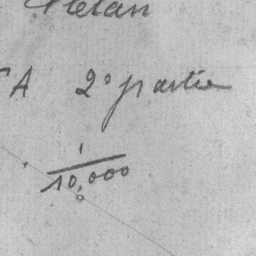 Mélan
A 2º partie
1
10,000